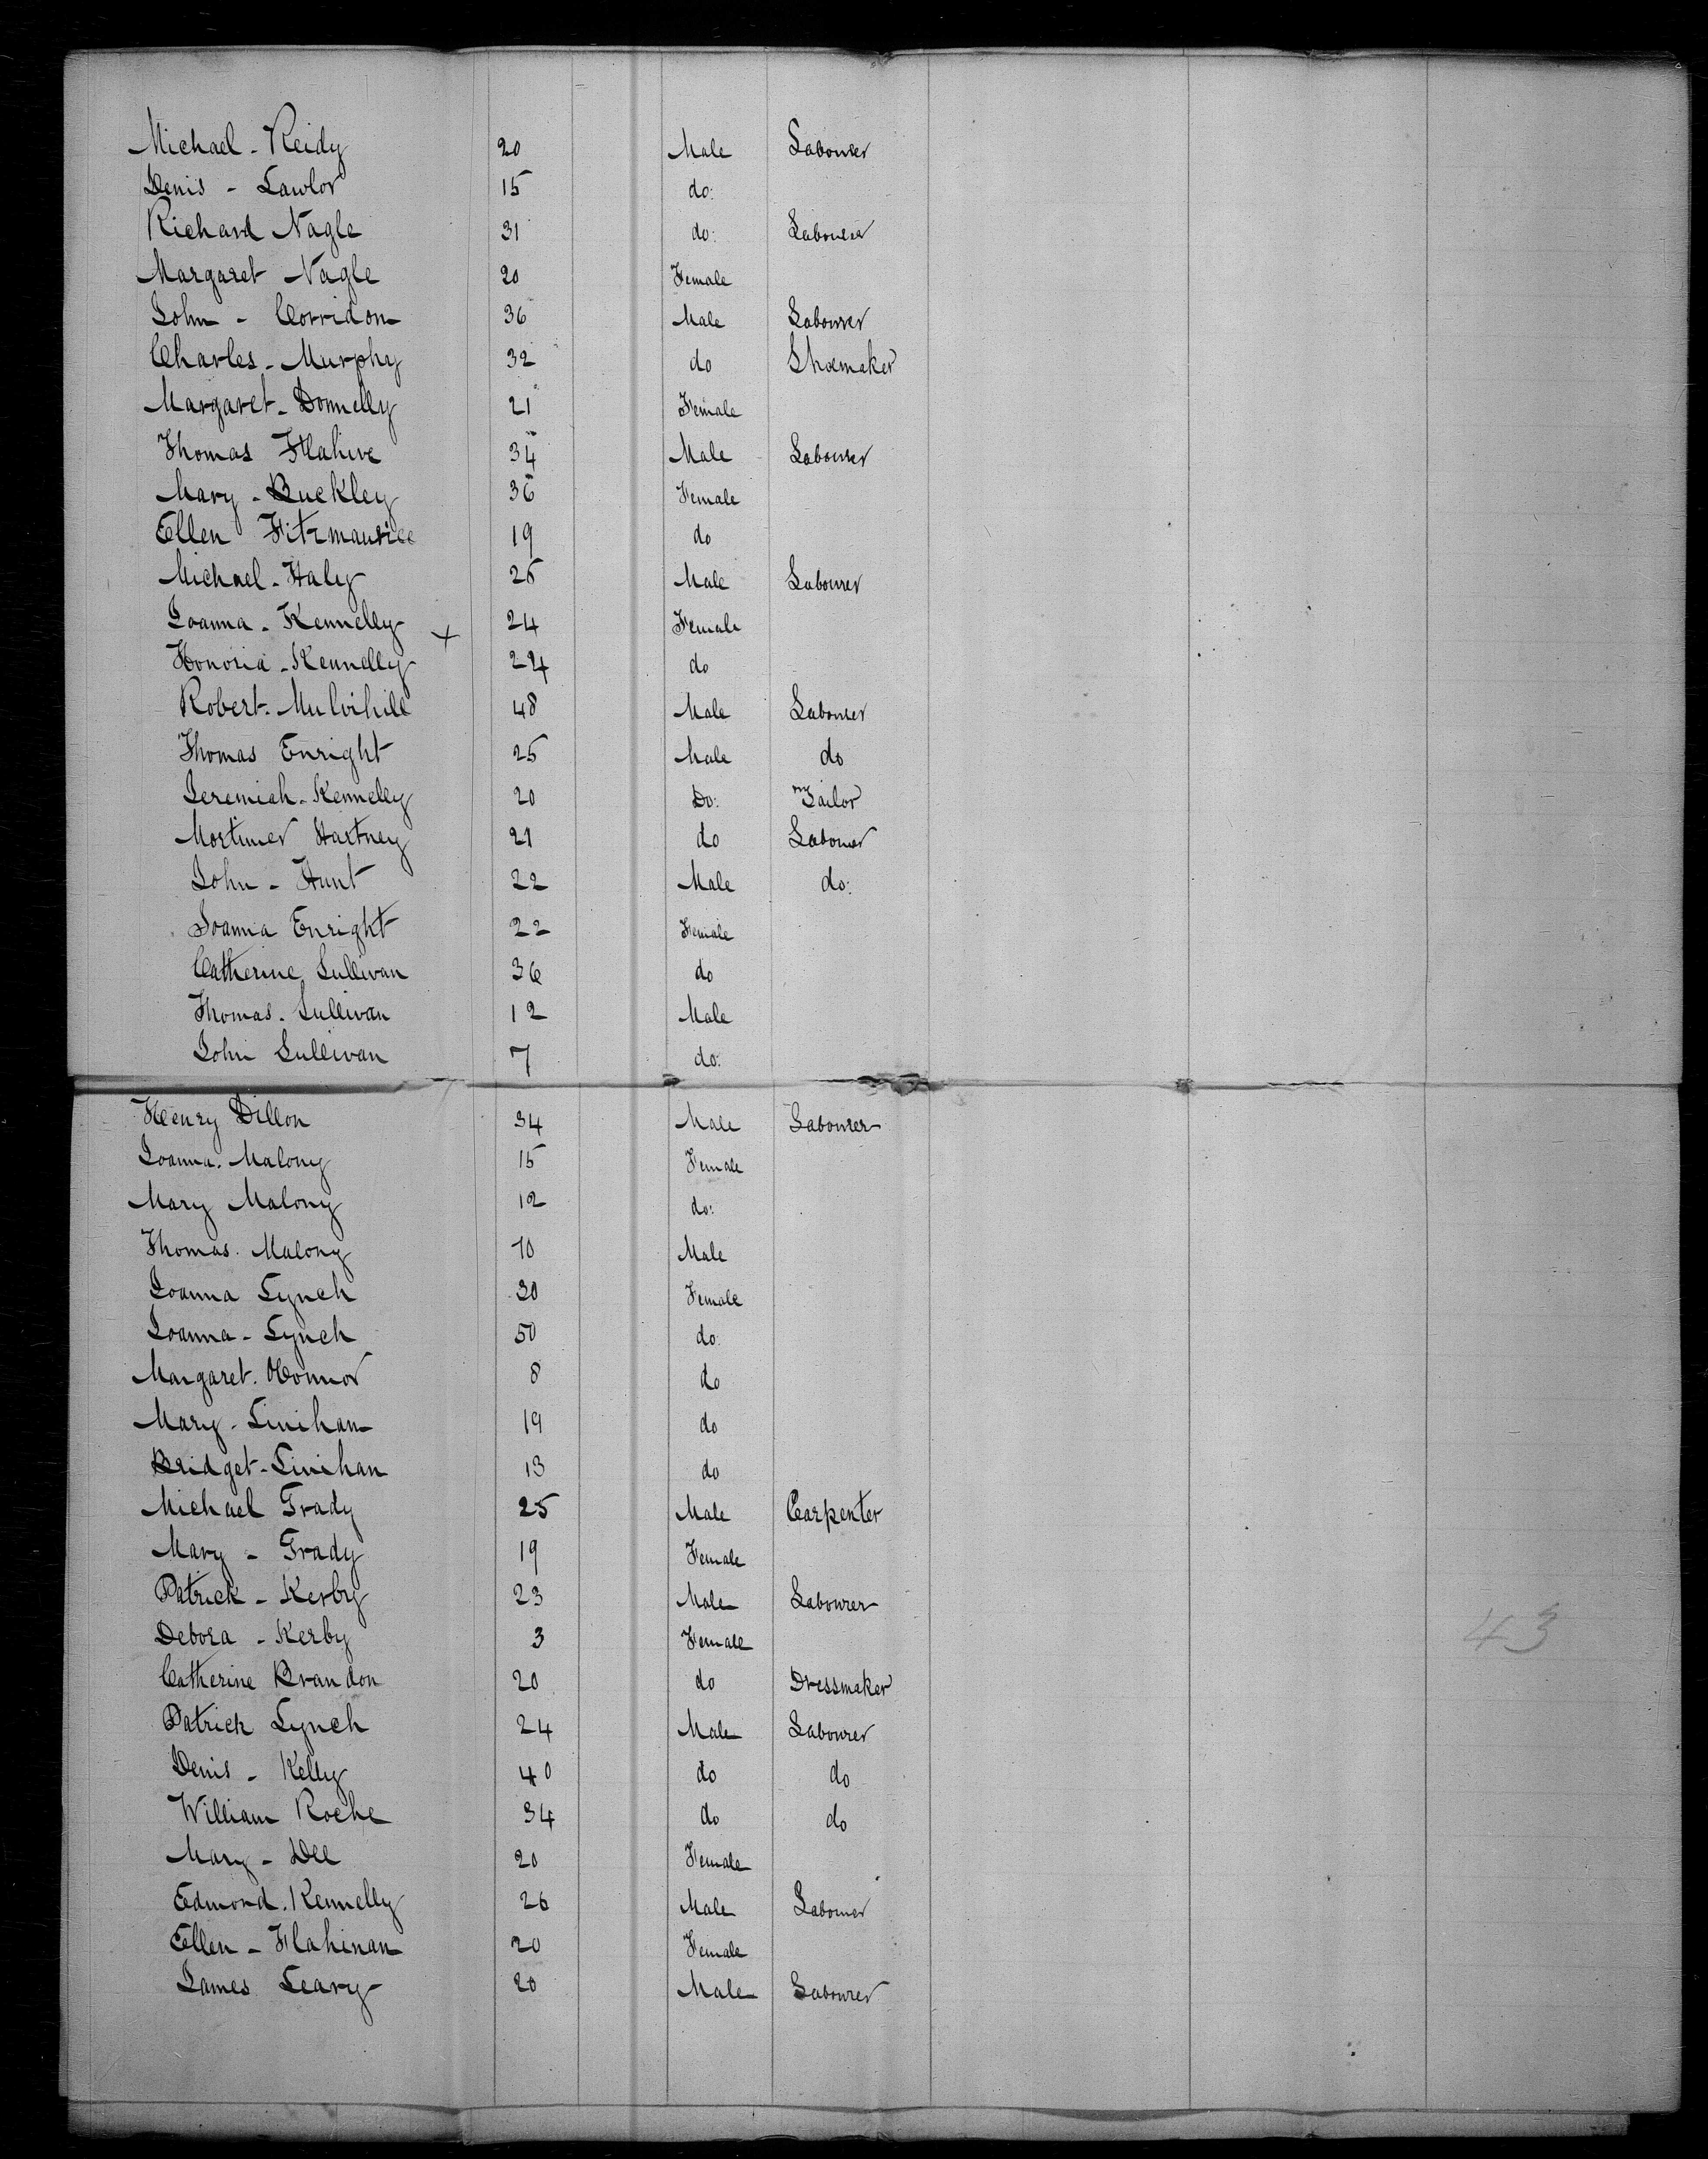 Michael - Reidy 20 Male Labourer
Denis - Lawlor 15 do:
Richard Nagle 31 do: Labourer
Margaret Nagle 20 Female
John - Corridon 36 Male Labourer
Charles - Murphy 32 do Shoemaker
Margaret - Donnelly 21 Female
Thomas Flahive 34 Male Labourer
Mary - Buckley 36 Female
Ellen Fitzmaurice 19 do
Michael - Haly 25 Male Labourer
Joanna - Kennelly 24 Female
Honoria - Kennelly x 24 do
Robert. Mulvihill 48 Male Labourer
Thomas Enright 25 Male do
Jeremiah - Kennelly 20 Do: Tailor
Mortimer Hartney 21 do Labourer
John - Hunt 22 Male do:
Joanna Enright 22 Female
Catherine Sullivan 36 do
Thomas. Sullivan 12 Male
John Sullivan 7 do:
Henry Dillon 34 Male Labourer
Joanna. Malony 15 Female
Mary Malony 12 do:
Thomas. Malony 10 Male
Joanna Lynch 30 Female
Joanna - Lynch 50 do:
Margaret. OConnor 8 do
Mary - Linihan 19 do
Bridget - Linihan 13 do
Michael Grady 25 Male Carpenter
Mary - Grady 19 Female
Patrick - Kerby 23 Male Labourer
Debora - Kerby 3 Female
43
Catherine Brandon 20 do Dressmaker
Patrick Lynch 24 Male Labourer
Denis - Kelly 40 do do
William Roche 34 do do
Mary - Dee 20 Female
Edmond. Kennelly 26 Male Labourer
Ellen - Flahinan 20 Female
James Leary 20 Male Labourer